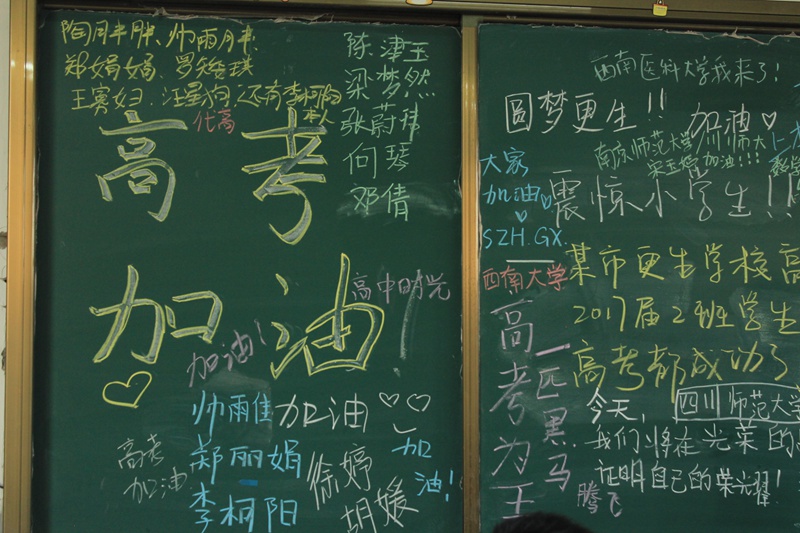 陶月半肿、帅雨月半、
郑娟娟、罗
王寡妇、汪星狗 还有李柯阳
本人
化高
高考
加油
陈津玉
梁梦然
张蔚祎
何琴
邓倩
高中时光
加油!
加油
帅雨佳
郑丽娟
李桐阳
徐婷
胡媛
加
油!
高考
加油
西南医科大学我来了!
圆梦更生!!
加油
南京师范大学
川师大
宋玉婷加油!!!
大家
加油
SZH.GX.
震惊小学生!!
西南大学
某市更生学校高
2017届2班学生
高考都成功了
高考为王
一匹黑马
腾飞
今天,四川师范大学
我们将在光荣的
证明自己的荣光耀!